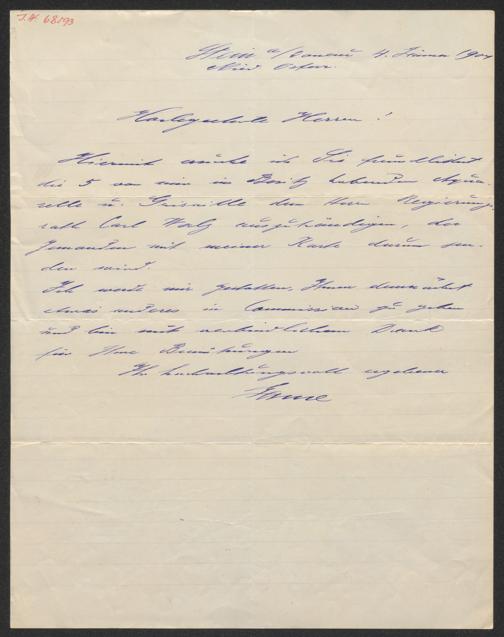 I.N. 68193
Stein a/Donau 4. Jänner 190
Nied. Oesterr.
Hochgeehrte Herren!
Hiermit möchte ich Sie freundlichst
die 5 von mir in Besitz habenden Aqua-
relle u. Grisaille dem Herr Regierungs-
rath Carl auszuhändigen, der
Jemanden mit meiner Karte darum sen-
den wird.
Ich werde mir gestatten, Ihnen demnächst
etwas anderes in Commission zu geben
und bin mit verbindlichem Dank
für Ihre Bemühungen
Ihr hochachtungsvoll ergebener